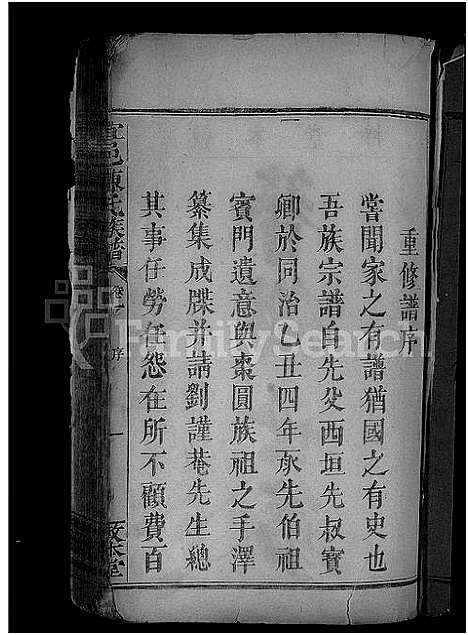 重修譜序
嘗聞家之有譜猶國之有史也
吾族宗譜自先父西垣先叔賓
卿於同治乙丑四年承先伯祖
賓門遺意與棗圓族祖之手澤
纂集成牒并請劉謹菴先生總
其事任勞任怨在所不顧費百
宜邑陳氏族譜 卷一 序 一 敦本堂
FamilySearch